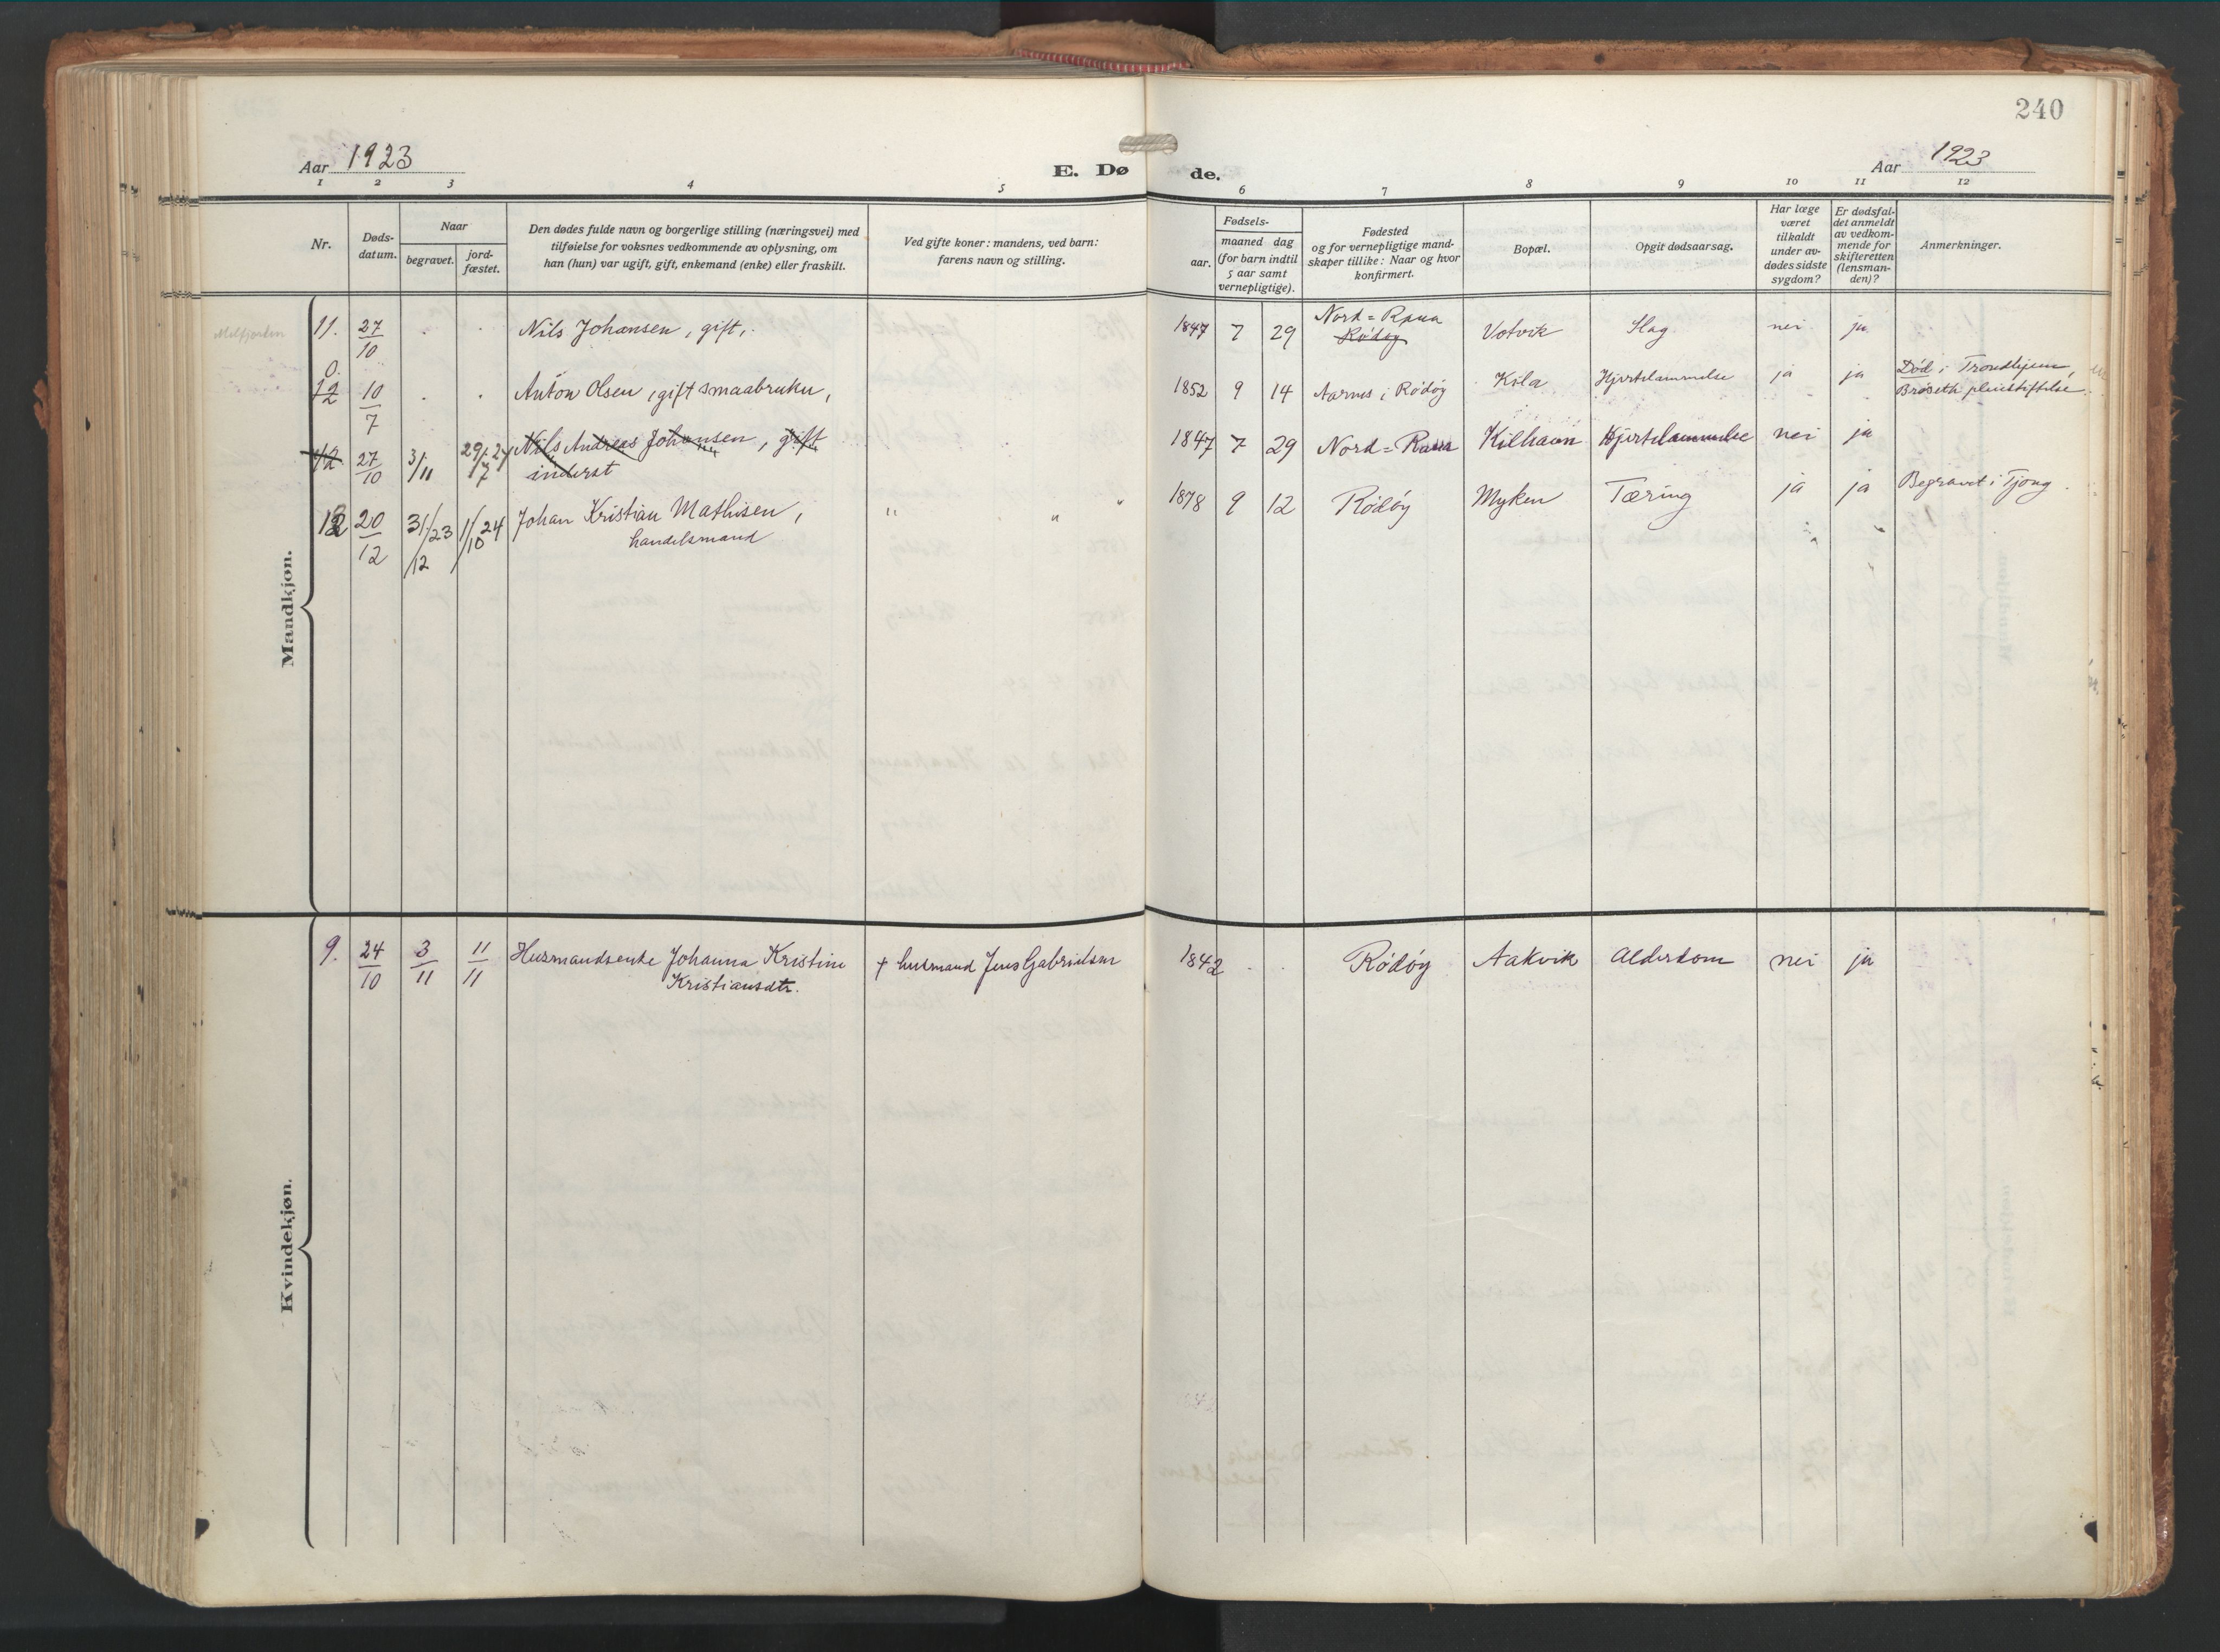 240
Aar 1923
E. Dø de.
Aar 1923
1 2 3 4 5 6 7 8 9 10 11 12
Nr.
Døds-
datum.
Naar
begravet.
jord-
fæstet.
Den dødes fulde navn og borgerlige stilling (næringsvei) med
tilføielse for voksnes vedkommende av oplysning, om
han (hun) var ugift, gift, enkemand (enke) eller fraskilt.
Ved gifte koner: mandens, ved barn:
farens navn og stilling.
Fødsels-
aar.
maaned dag
(for barn indtil
5 aar samt
vernepligtige).
Fødested
og for vernepligtige mand-
skaper tillike: Naar og hvor
konfirmert.
Bopæl.
Opgit dødsaarsag.
Har læge
været
tilkaldt
under av-
dødes sidste
sygdom?
Er dødsfal-
det anmeldt
av vedkom-
mende for
skifteretten
(lensman-
den)?
Anmerkninger.
Mandkjøn.
Melfjorden 11. 27/10 Nils Johansen, gift, 1847 7 29 Nord=Rana
Rødøy Votvik Slag nei ja
12 10/7 Anton Olsen, gift smaabruker, 1852 9 14 Aarnes i Rødøy Kila Hjertelammelse ja ja Död i Trondhjem,
Brøseth pleiestiftelse.
12 27/10 3/11 29/7-24 Nils Andreas Johansen, gift
inderst 1847 7 29 Nord=Rana Kilhavn Hjertelammelse nei ja
20/12 31/12 23 1/10 24 Johan Kristian Mathisen,
handelsmand " " " 1878 9 12 Rødøy Myken Tæring ja ja Begravet i Tjong.
Kvindekjøn.
9. 24/10 3/11 11/11 Husmandsenke Johanna Kristine
Kristiansdtr. + husmand Jens Gabrielsen 1842 Rødøy Aakvik Alderdom nei ja